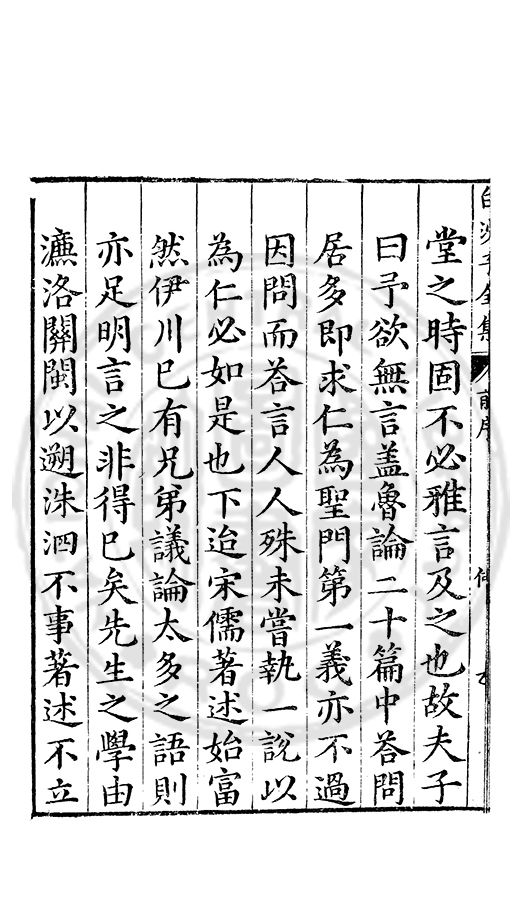 白沙子全集 前序
堂之時固不必雅言及之也故夫子
曰予欲無言盖魯論二十篇中答問
居多即求仁為聖門第一義亦不過
因問而答言人人殊未嘗執一說以
為仁必如是也下迨宋儒著述始富
然伊川已有兄弟議論太多之語則
亦足明言之非得已矣先生之學由
濂洛關閩以遡洙泗不事著述不立